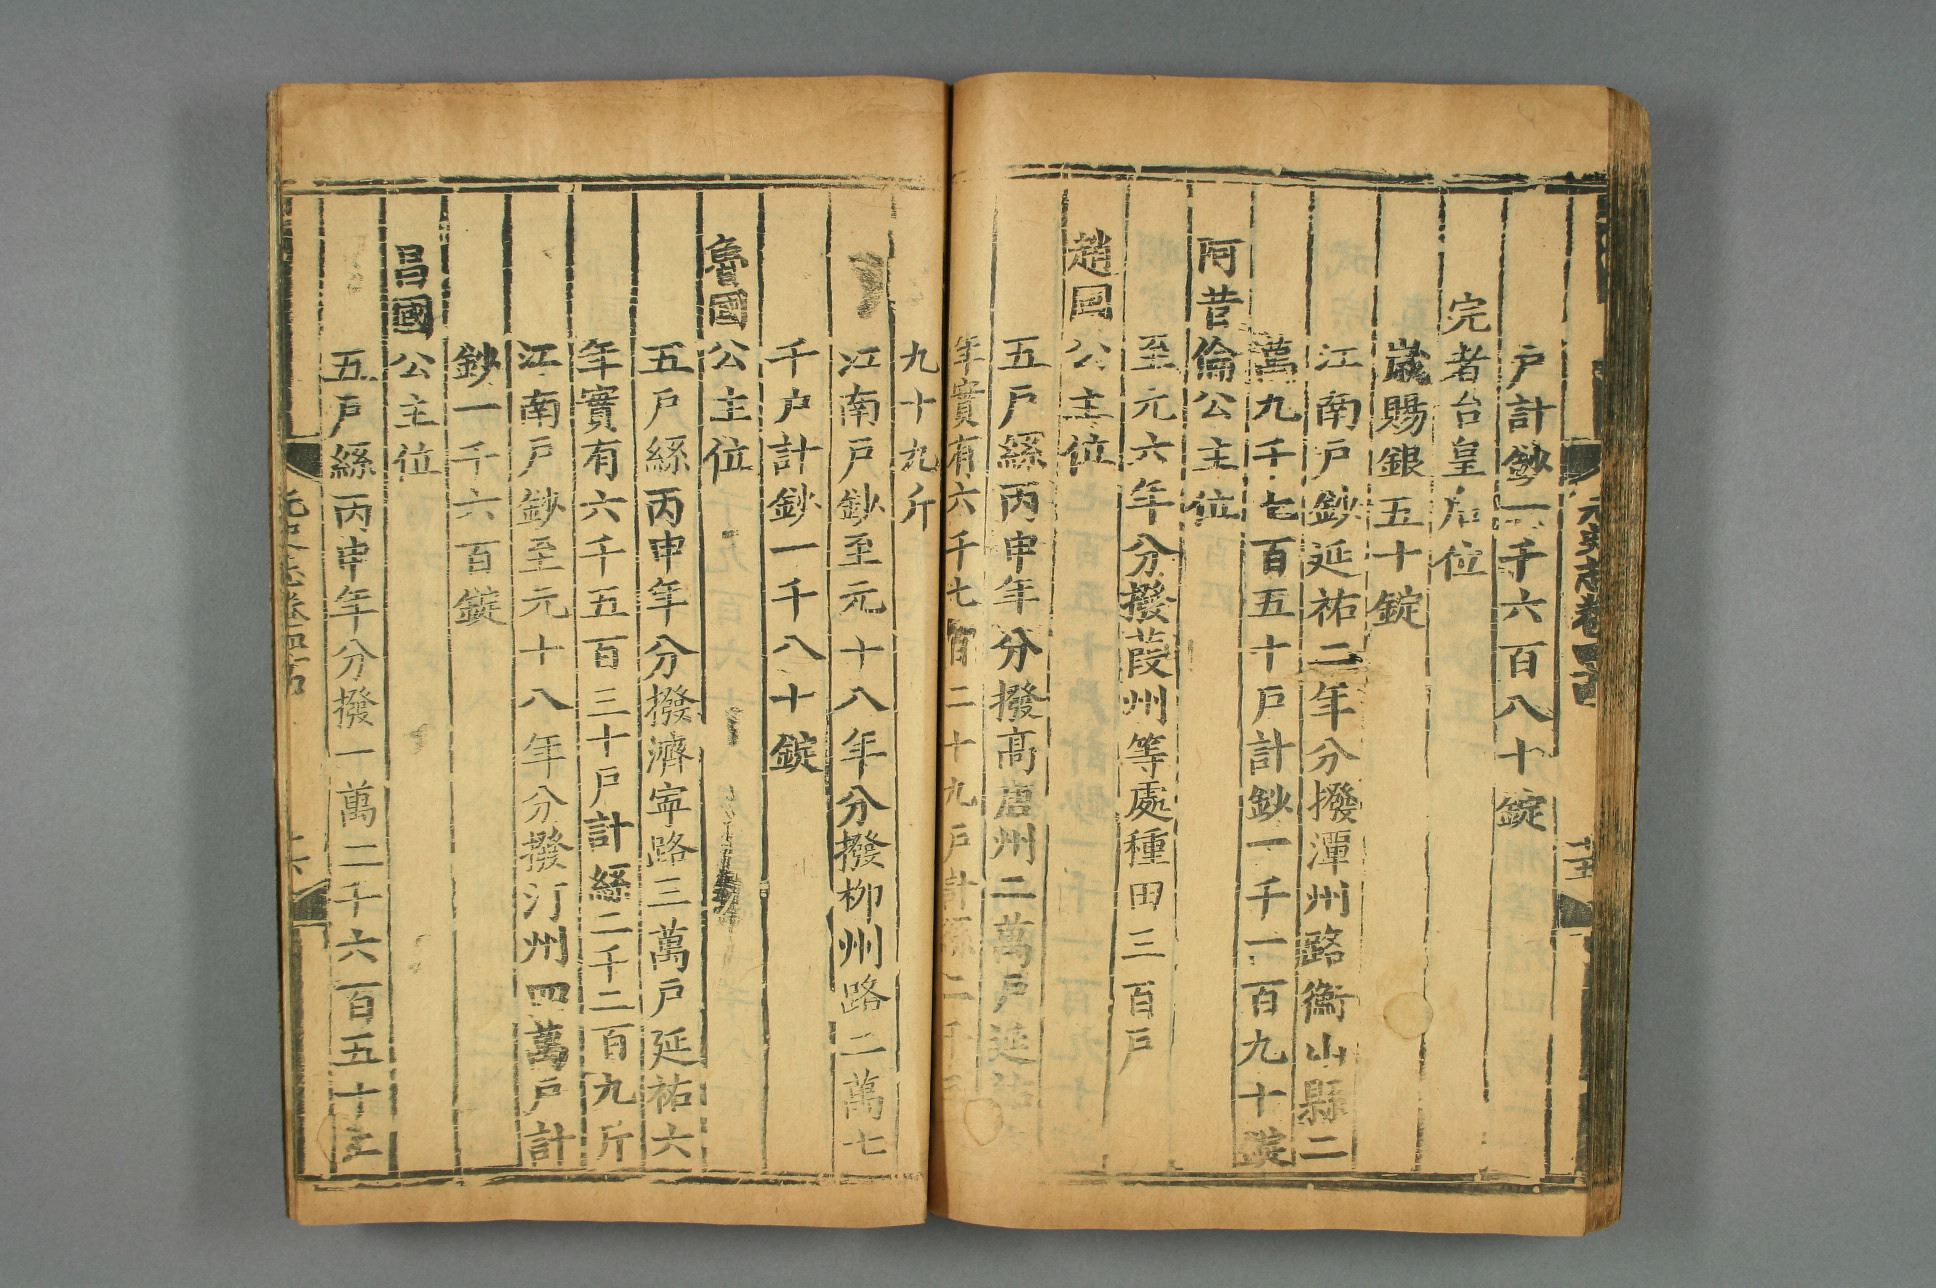 户計鈔二千六百八十錠
完者台皇后位
歲賜銀五十錠
江南戸鈔延祐二年分撥潭州路衡山縣二
萬九千七百五十戸計鈔一千一百九十錠
阿昔倫公主位
至元六年分撥葭州等處種田三百戸
趙國公主位
五戸絲丙申年分撥髙唐州二萬戸延祐六
年實有六千七百二十九戸計絲二千三百
九十九斤
江南戸鈔至元十八年分撥柳州路二萬七
千户計鈔一千八十錠
魯國公主位
五戸絲丙申年分撥濟寧路三萬戸延祐六
年實有六千五百三十戸計絲二千二百九斤
江南戸鈔至元十八年分撥汀州四萬戸計
鈔一千六百錠
昌國公主位
五戸絲丙申年分撥一萬二千六百五十二